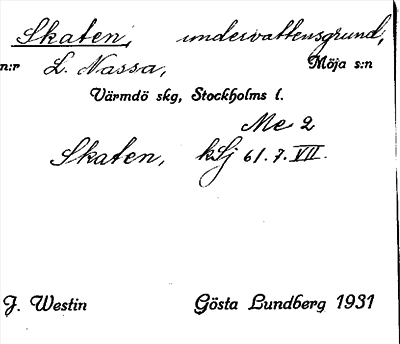 Skaten, undervattensgrund,
n:r L. Nassa, Möja s:n
Värmdö skg, Stockholms l.
Me 2
Skaten, kSj 61.7.VII.
J. Westin Gösta Lundberg 1931